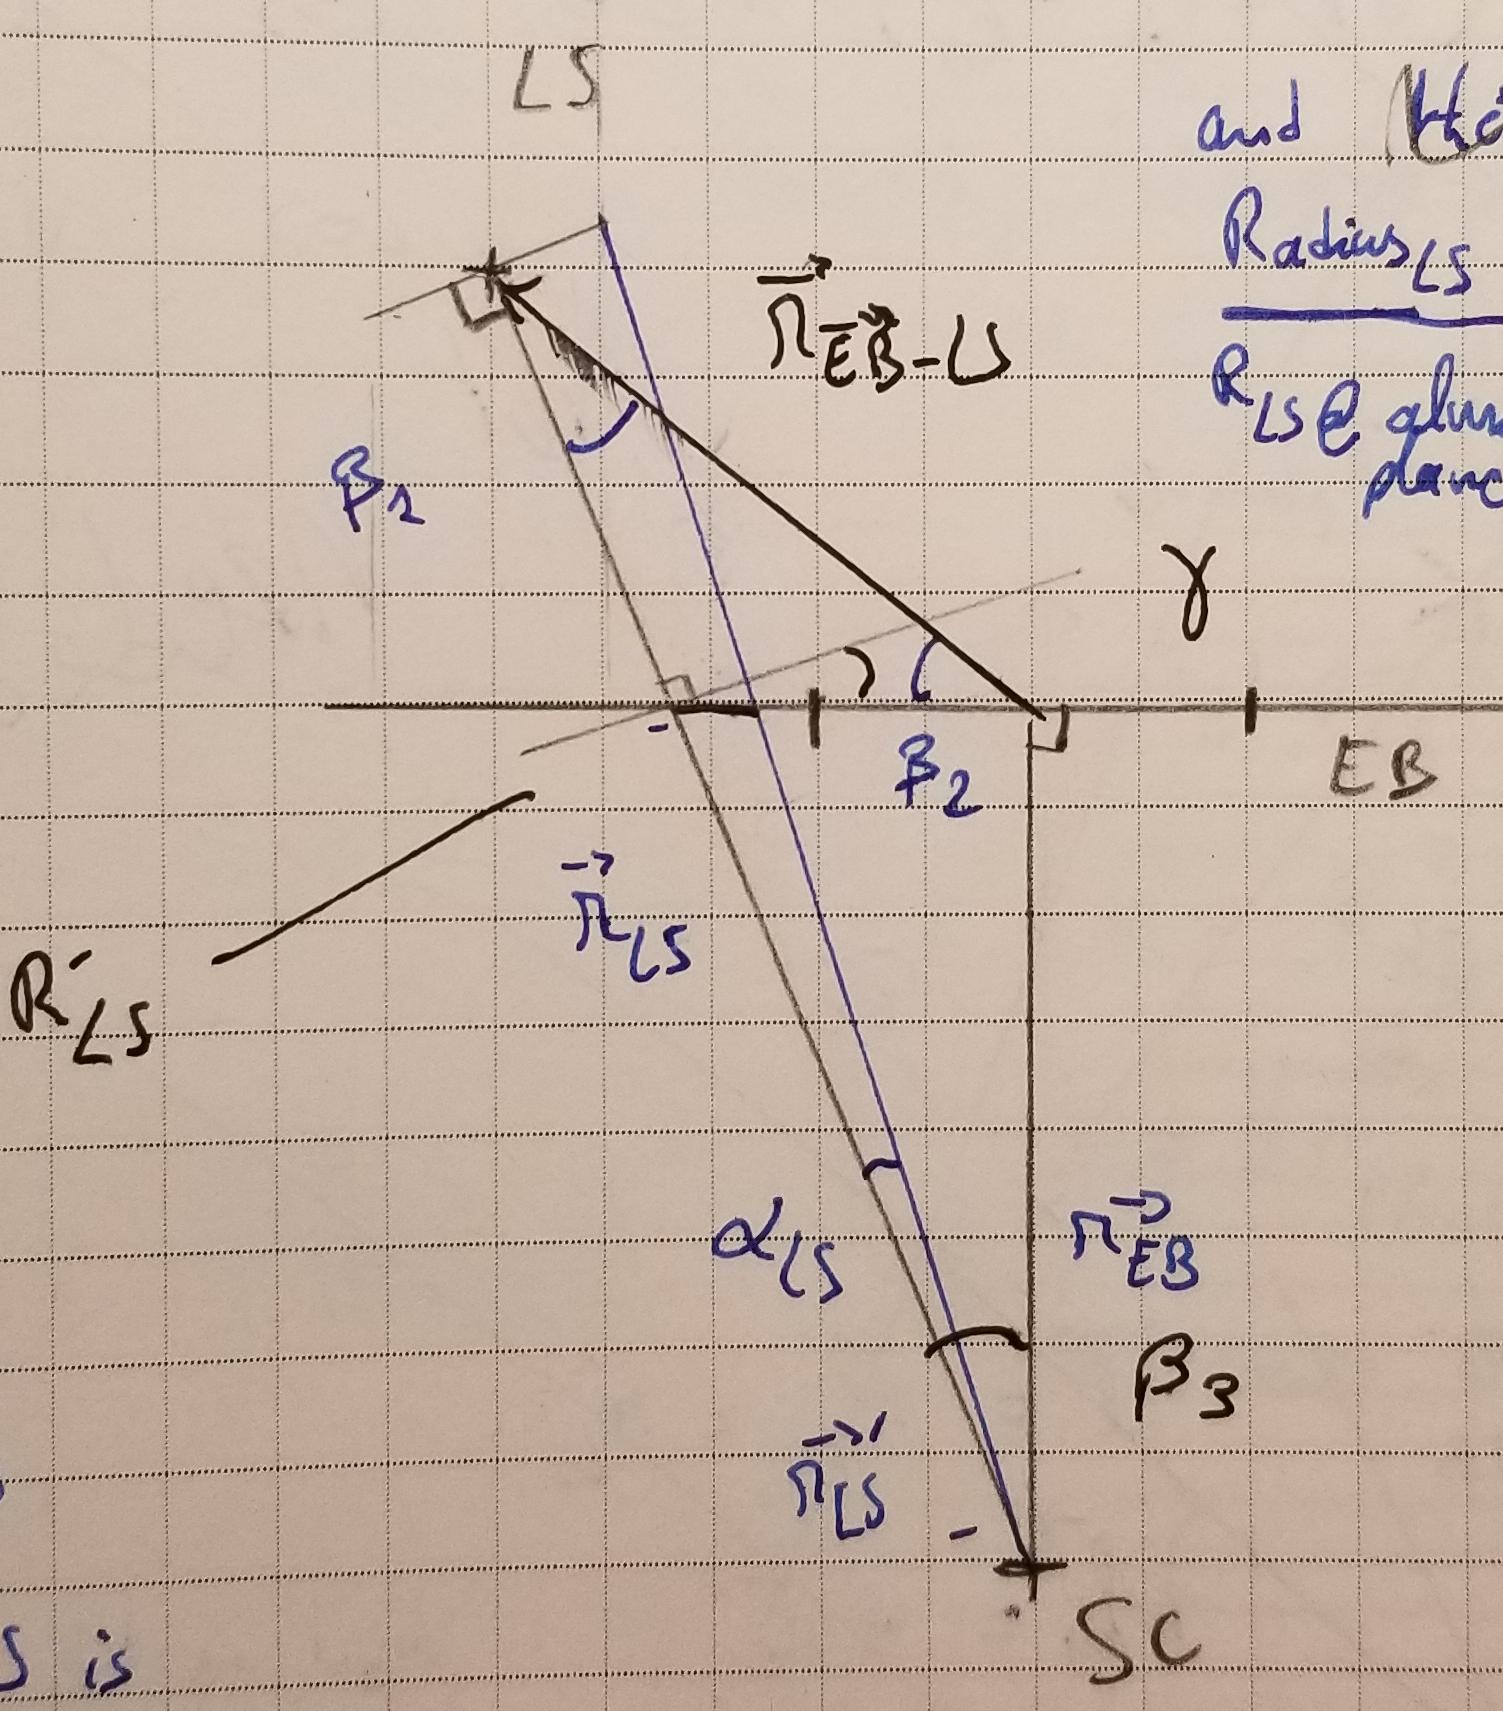 LS
and
Radius LS
r⃗ EB-LS
R LS @
plane
β1
γ
β2
EB
r⃗ LS
R'LS
α LS
r⃗ EB
β3
r⃗' LS
SC
S is